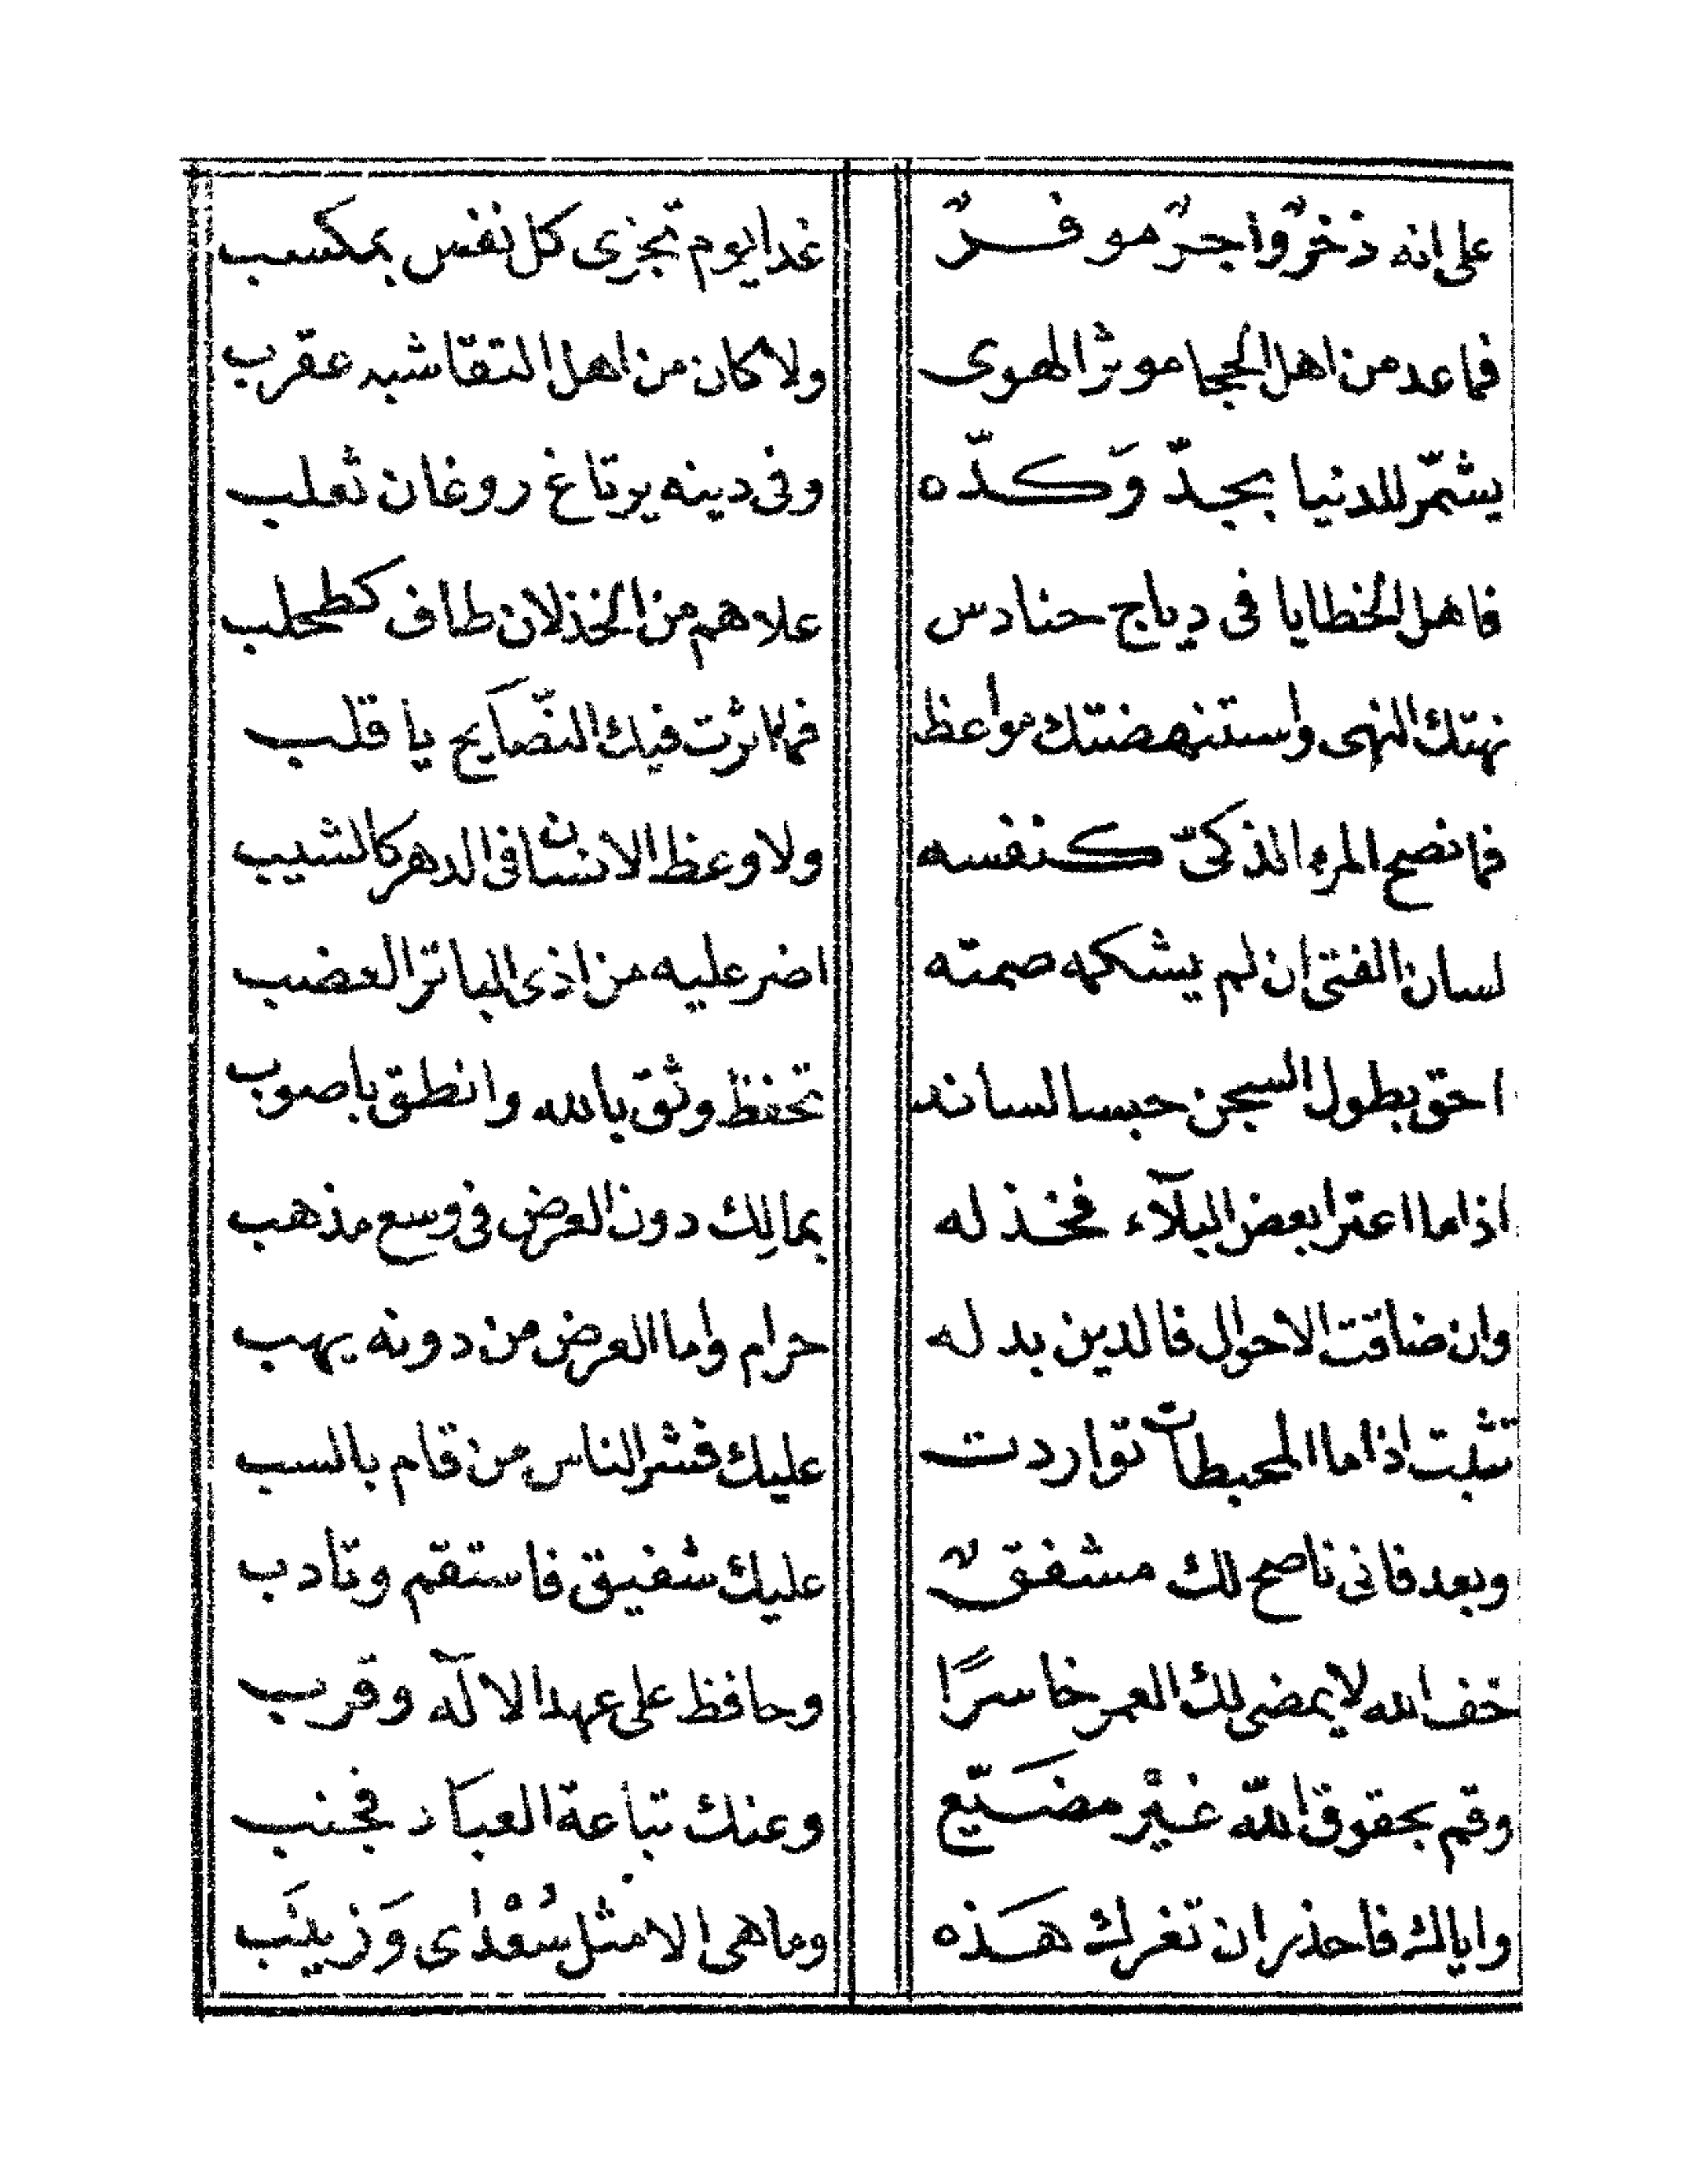 على انه ذخرٌ واجرٌ موفرٌ غدا يوم تجزى كل نفس بمكسب
فما عد من اهل الحجا موثر الهوى ولا كان من اهل التقا شبه عقرب
يشمّر للدنيا بجدّ وَكدّه وفى دينه يرتاغ روغان ثعلب
فاهل الخطايا فى دياج حنادس علاهم من الخذلان طاف كطحلب
نهتك النهى واستنهضتك مواعظ فما اثرت فيك النصّايح يا قلب
فما نصح المرء الذكىّ كنفسه ولا وعظ الانسان فى الدهر كالشيب
لسان الفتى ان لم يشكمه صمته اضر عليه من اذى الباتر العضب
احق بطول السجن حبسا لسانه تحفظ وثق بالله وانطق باصوب
اذا ما اعترا بعض البلآء فخذ له بمالك دون العرض فى وسع مذهب
وان ضاقت الاحوال فالدين بدله حرام واما العرض من دونه يهب
تثبت اذا ما المحبطات تواردت عليك فشر الناس من قام بالسب
وبعد فانى ناصح لك مشفقٌ عليك شفيق فاستقم وتادب
خف الله لا يمضى لك العمر خاسرًا وحافظ على عهد الالٓه وقرب
وقم بحقوق اللّه غيْر مضَيّع وعنك تباعة العبَاد فجنب
واياك فاحذر ان تغرك هَذه وما هى الا مثل سُعْدٰى وَزينَب